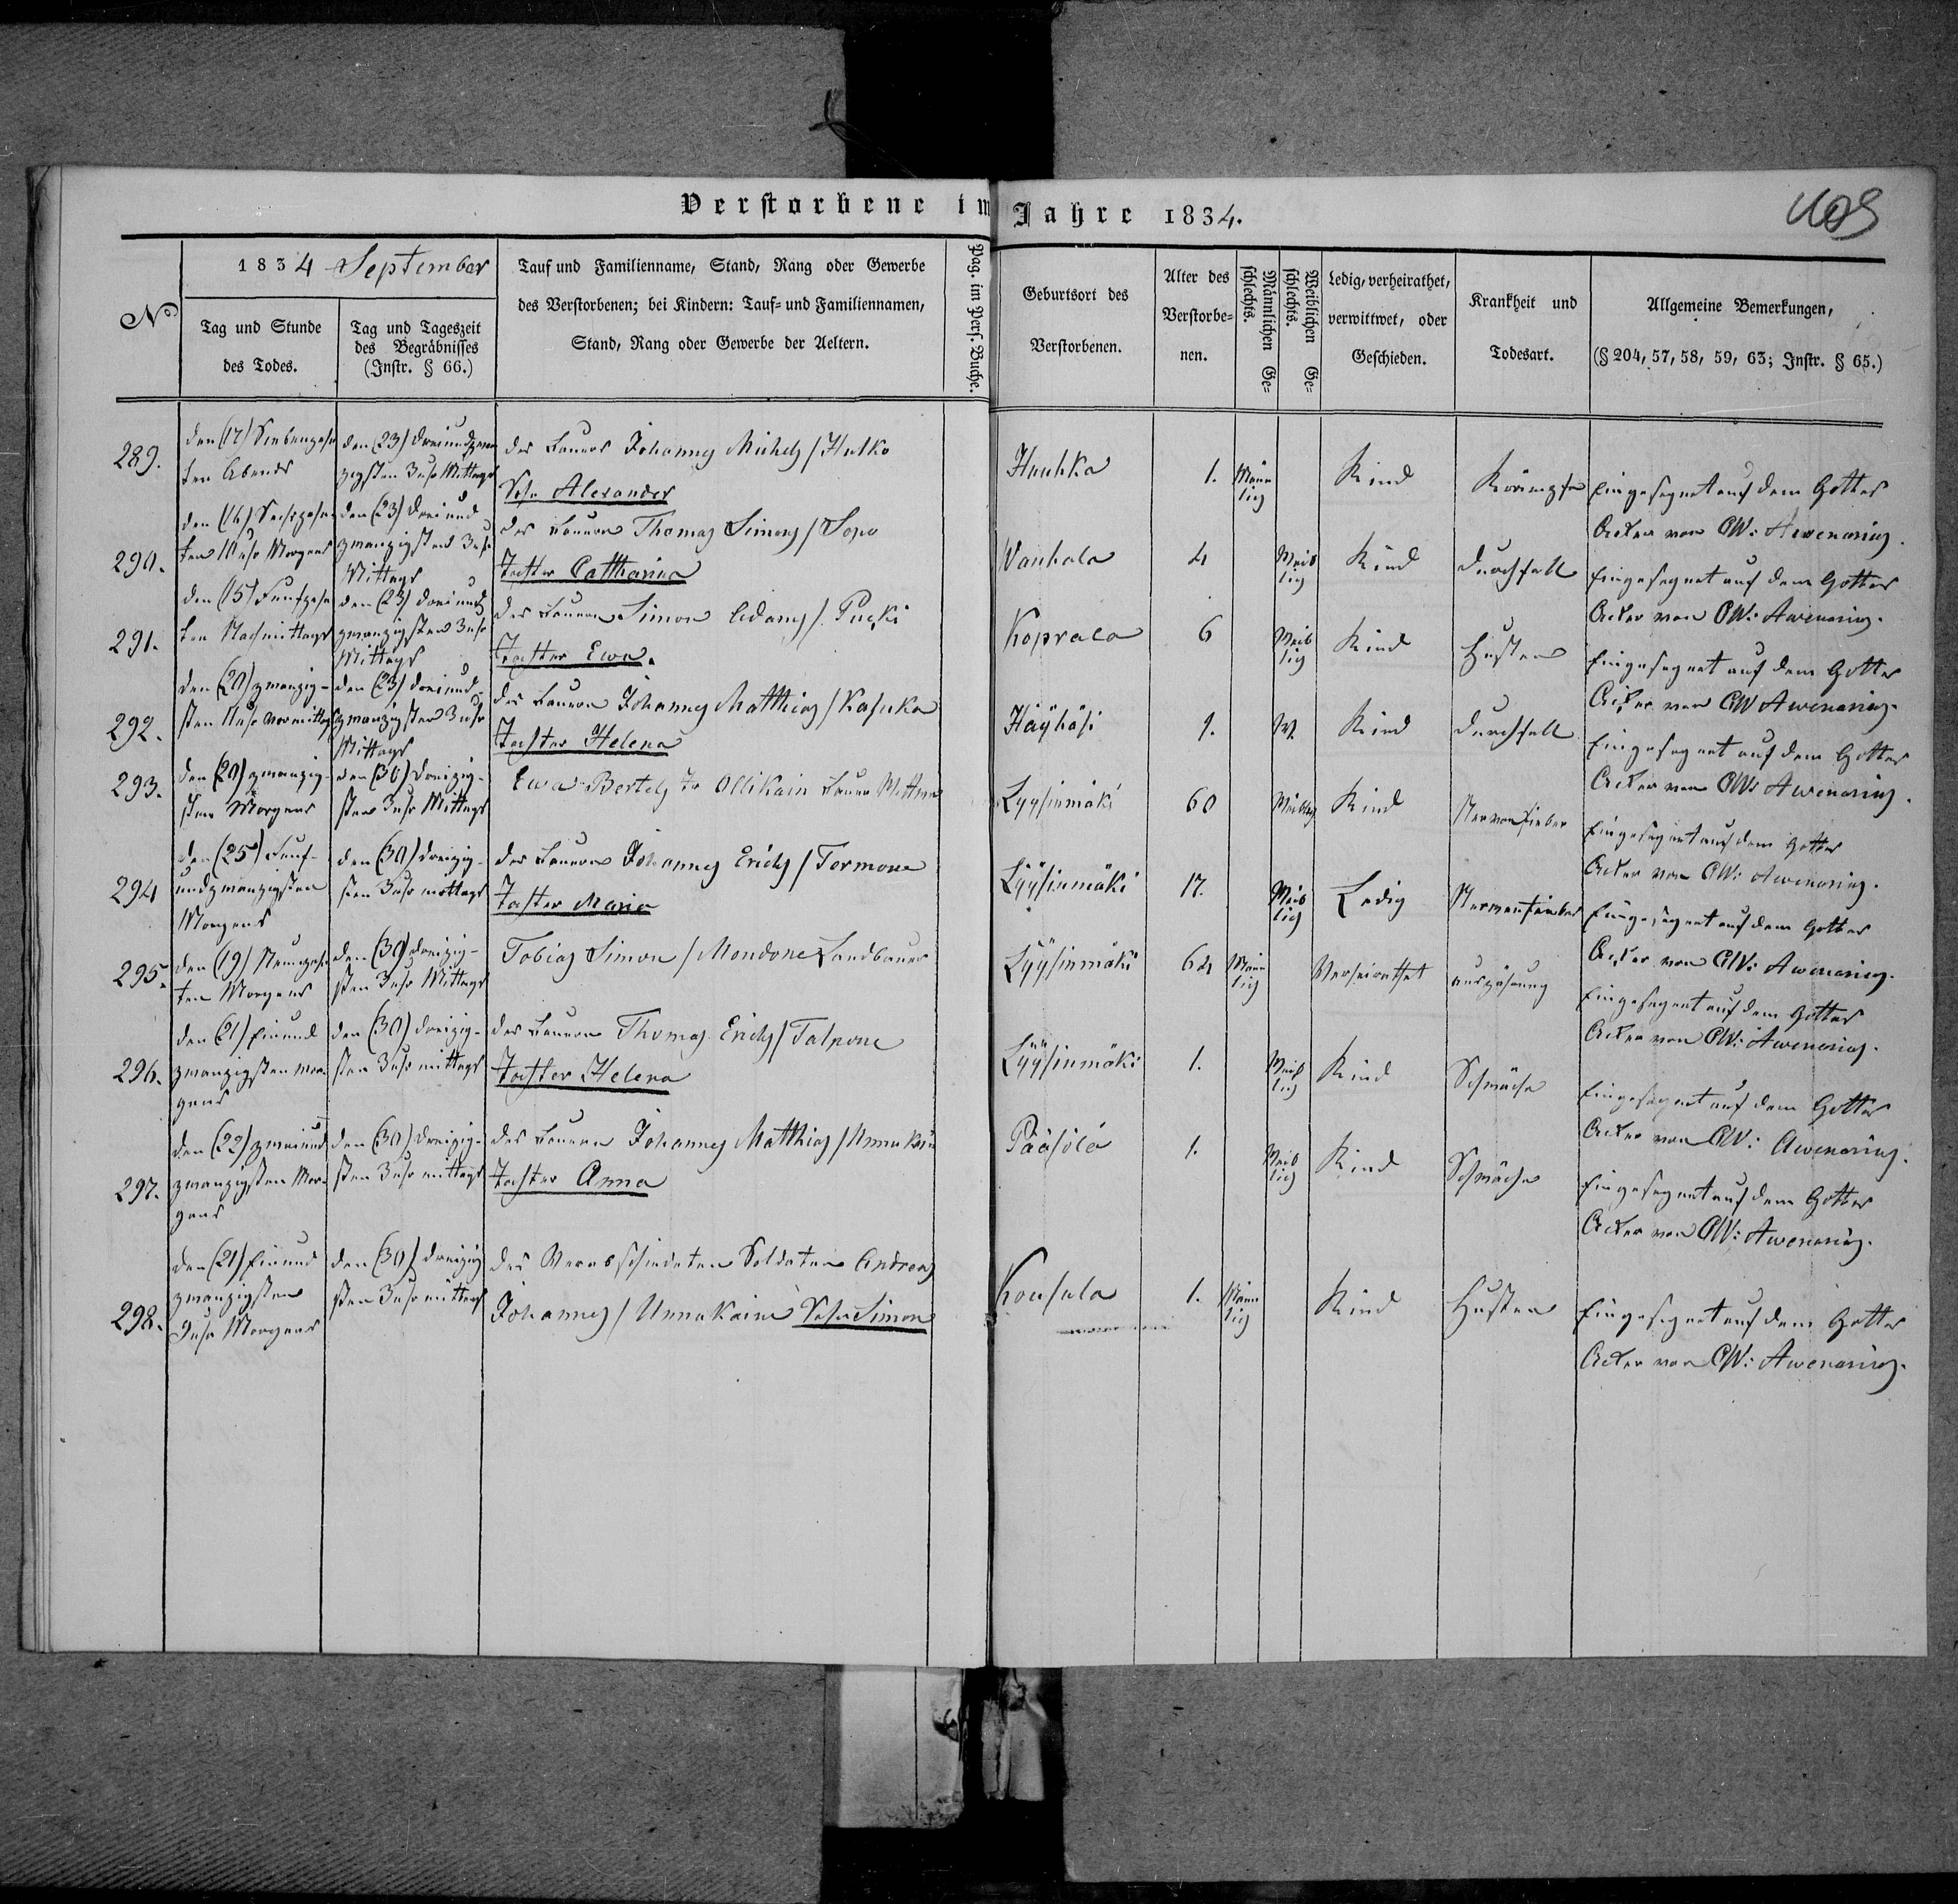 Verstorbene im Jahre 1834.
Nº
1834 September
Tag und Stunde
des Todes.
Tag und Tageszeit
des Begräbnisses
(Instr. § 66.)
Tauf und Familienname, Stand, Rang oder Gewerbe
des Verstorbenen; bei Kindern: Tauf- und Familiennamen,
Stand, Rang oder Gewerbe der Aeltern.
Pag. im Pers. Buche.
Geburtsort des
Verstorbenen.
Alter des
Verstorbe-
nen.
Männlichen Ge-
schlechts.
Weiblichen Ge-
schlechts.
Ledig, verheirathet,
verwittwet, oder
Geschieden.
Krankheit und
Todesart.
Allgemeine Bemerkungen,
(§ 204, 57, 58, 59, 63; Instr. § 65.)
289.
den (17) Siebenzehn
ten Abends
den (23) dreiundzwan
zigsten 3 uhr Mittags
des Bauern Johannes Michels / Hulko
Sohn Alexander
Hauhka
1.
Männ
lich
Kind
Krämpfe
Eingesegnet auf dem Gottes
Acker von CW: Awenarius.
290.
den (16) Sechszehn
ten Uhr Morgens
den (23) drei und
zwanzigsten 3 uhr
Mittags
des Bauern Thomas Simons / Sopo
Tochter Catharina
Wanhala
4
Weib
lich
Kind
Durchfall
Eingesegnet auf dem Gottes
Acker von CW: Awenarius.
291.
den (15) Funfzehn
ten Nachmittags
den (23) drei und
zwanzigsten 3 uhr
Mittags
des Bauern Simon Adams / Pucki
Tochter Ewa.
Koprala
6
Weib
lich
Kind
Husten
Eingesegnet auf dem Gottes
Acker von CW Awenarius.
292.
den (20) zwanzig-
sten Uhr Vormittags
den (23) drei und
zwanzigsten 3 uhr
Mittags
des Bauern Johannes Matthias / Kasuka
Tochter Helena
Häyhäsi
1.
W.
Kind
Durchfall
Eingesegnet auf dem Gottes
Acker von CW: Awenarius.
293.
den (20) zwanzig-
sten Morgens
den (30) dreizig-
sten 3 uhr Mittags
Ewa Bertels Tr Ollikain Bauer Wittwe
Lyysinmäki
60
Weiblich
Kind
Nervenfieber
Eingesegnet auf dem Gottes
Acker von CW: Awenarius.
294
den (25) Funf-
undzwanzigsten
Morgens
den (30) dreizig-
sten 3 uhr mittags
des Bauern Johannes Erichs / Termone
Tochter Maria
Lyysinmäki
17.
Weib
lich
Ledig
Nervenfieber
Eingesegnet auf dem Gottes
Acker von CW: Awenarius.
295.
den (19) Neunzehn
ten Morgens
den (30) dreizig-
sten 3 uhr Mittags
Tobias Simon / Mondone Landbauer
Lyysinmäki
Männ
lich
Verheirathet
Auszehrung
Eingesegnet auf dem Gottes
Acker von CW: Awenarius.
296.
den (21) Einund
zwanzigsten mor-
gens
den (30) dreizig-
sten 3 uhr mittags
des Bauern Thomas Erichs / Talpone
Tochter Helena
Lyysinmäki
1.
Weib
lich
Kind
Schwäche
Eingesegnet auf dem Gottes
Acker von CW: Awenarius.
297.
den (22) zweiund
zwanzigsten Mor-
gens
den (30) dreizig-
sten 3 uhr mittags
des Bauern Johannes Matthias / Unnukain
Tochter Anna
Pääsölä
1.
Weib
lich
Kind
Schwäche
Eingesegnet auf dem Gottes
Acker von CW: Awenarius.
298.
den (21) Einund
zwanzigsten
Uhr Morgens
den (30) dreizig
sten 3 uhr mittags
des Verabschiedeten Soldaten Andreas
Johannes / Unnukaine Sohn Simon
Kousula
1.
Männ
lich
Kind
Husten
Eingesegnet auf dem Gottes
Acker von CW: Awenarius.